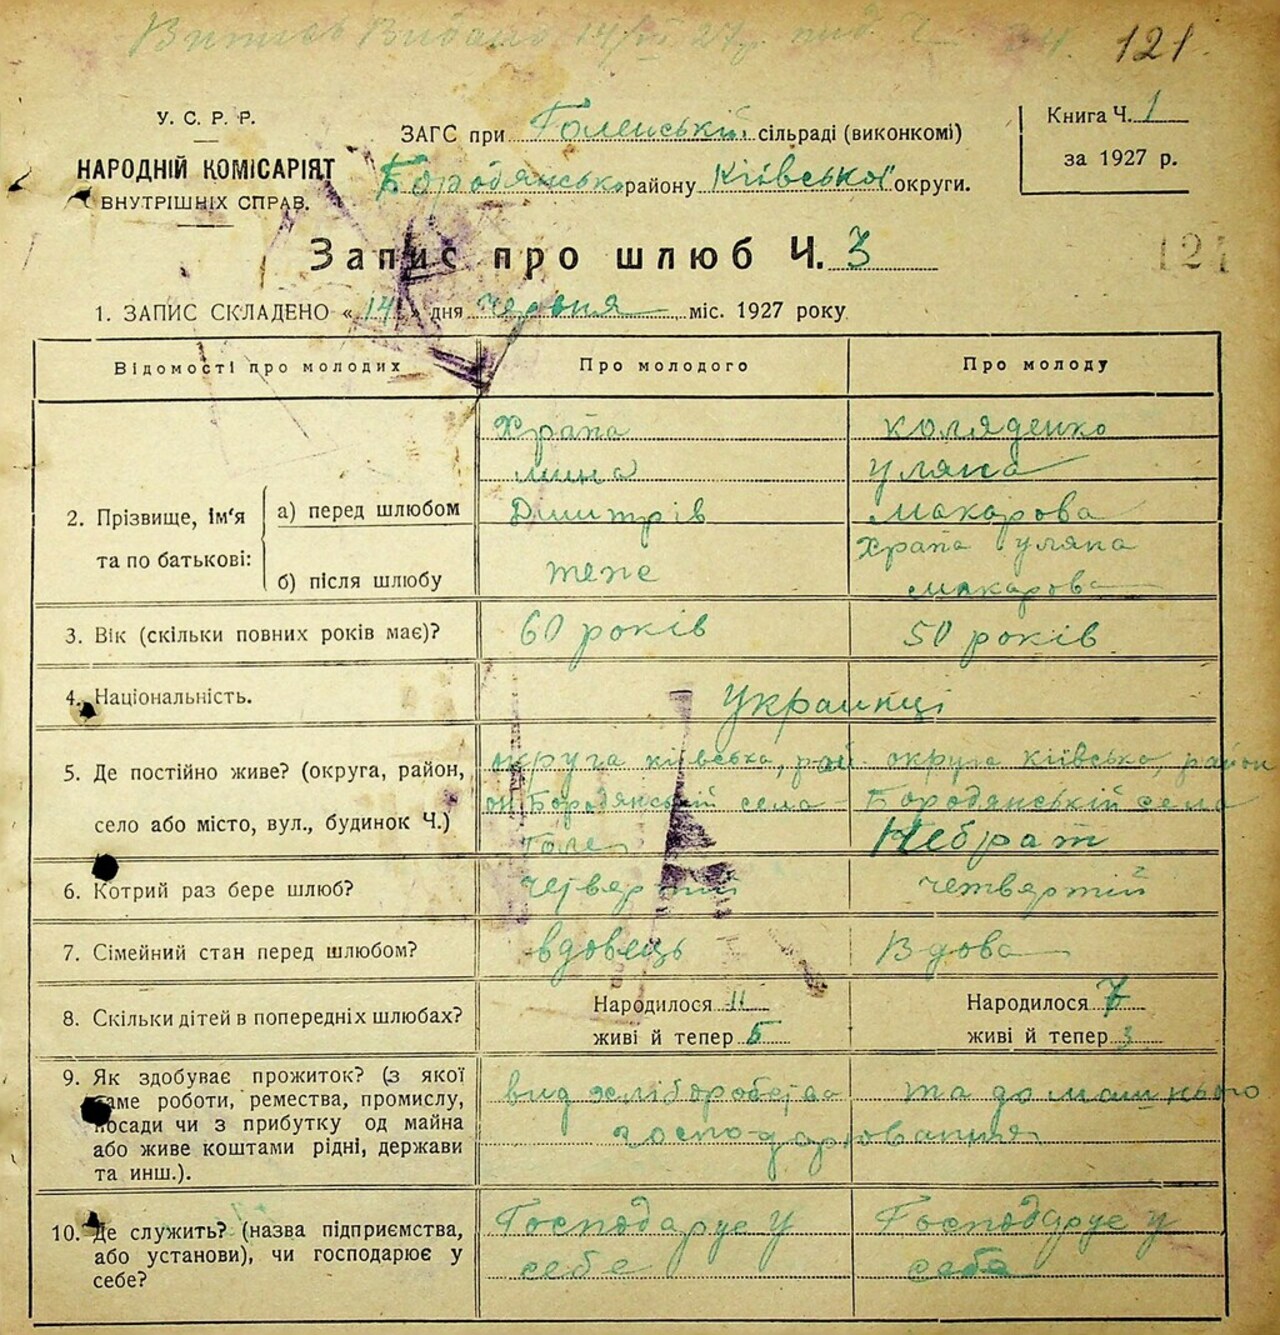 Витяг Видано 14/III 27р. під Ч. 24. 121
У. С. Р. Р.
НАРОДНІЙ КОМІСАРІЯТ
ВНУТРІШНІХ СПРАВ.
ЗАГС при Голенській сільраді (виконкомі)
Бородянсько району Київської округи.
Книга Ч. 1
за 1927 р.
Запис про шлюб Ч. 3
121
1. ЗАПИС СКЛАДЕНО « 14 » дня червня міс. 1927 року
Відомості про молодих
Про молодого
Про молоду
2. Прізвище, ім'я та по батькові:
а) перед шлюбом
Храпа
мина
Дмитрів
коляденко
уляна
макарова
б) після шлюбу
тепе
Храпа уляна
макарова
3. Вік (скільки повних років має)?
60 років
50 років
4. Національність.
украинці
5. Де постійно живе? (округа, район,
село або місто, вул., будинок Ч.)
округа київська, рай
он Бородянській села
Голе
округа київська, район
Бородянській села
Небрат
6. Котрий раз бере шлюб?
четвертій
четвертій
7. Сімейний стан перед шлюбом?
вдовець
Вдова
8. Скільки дітей в попередніх шлюбах?
Народилося 11
живі й тепер 5
Народилося 7
живі й тепер 3
9. Як здобуває прожиток? (з якої
саме роботи, ремества, промислу,
посади чи з прибутку од майна
або живе коштами рідні, держави
та инш.).
вид хліборобства та домашнього
господарювання
10. Де служить? (назва підприємства,
або установи), чи господарює у
себе?
Господарує у
себе
Господарує у
себе